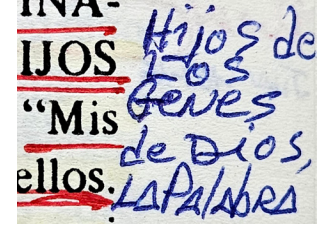 INA-
IJOS
“Mis
ellos.
Hijos de
Los
Genes
de Dios,
LA PALABRA